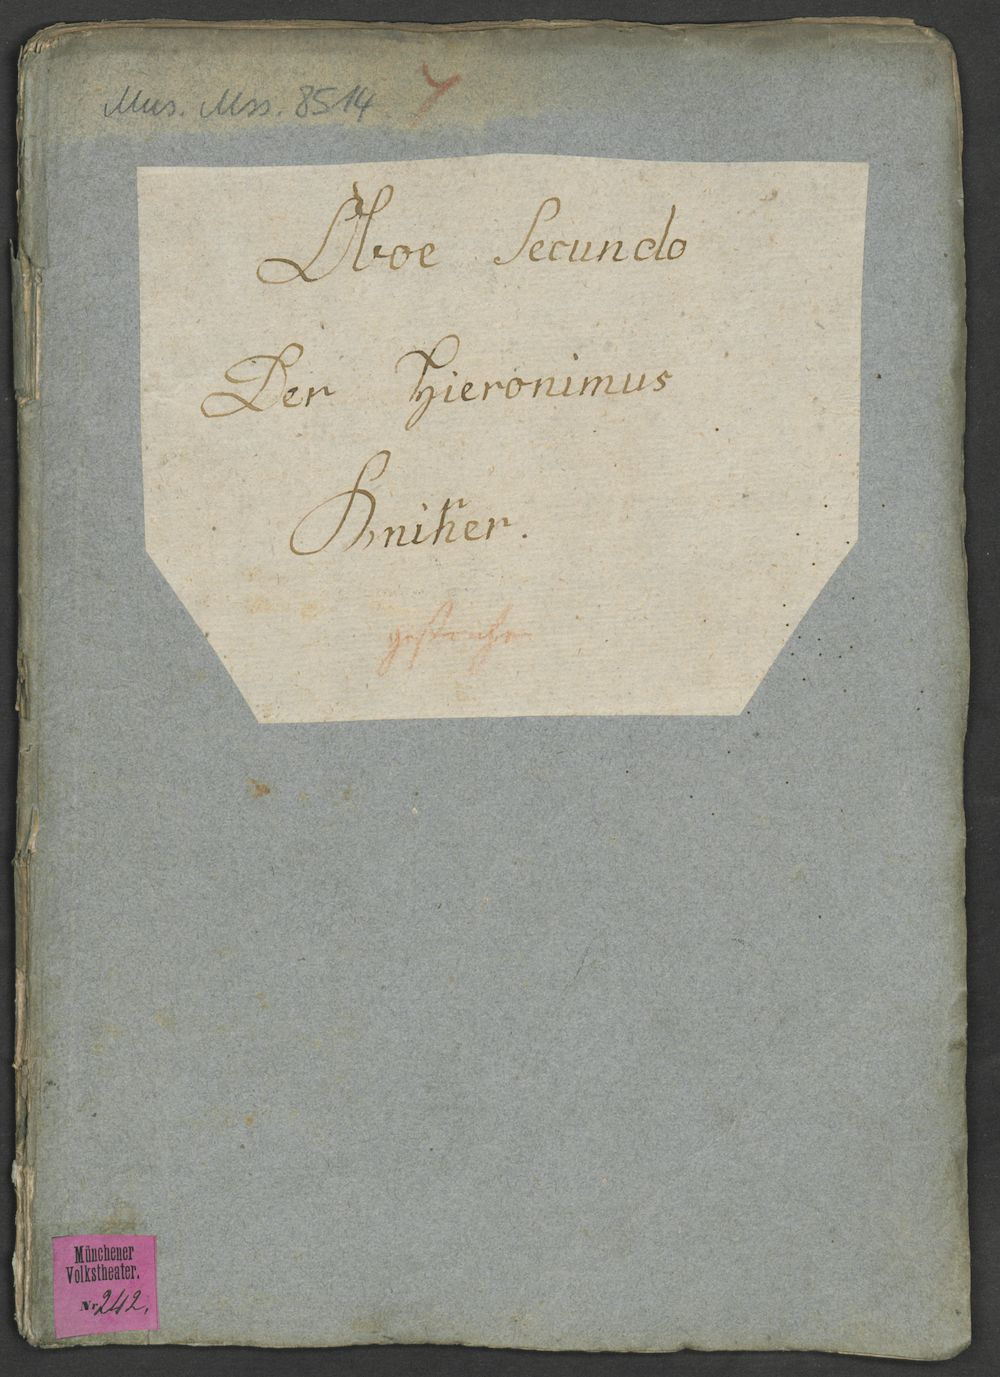 Mus. Mss. 8514
Oboe Secundo
Der Hieronimus
Kniker.
gestrichen
Münchener
Volkstheater.
Nr. 242.